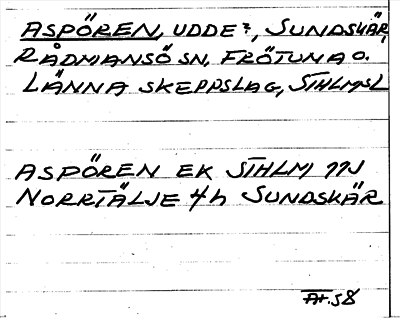 ASPÖREN, UDDE?, SUNDSKÄR,
RÅDMANSÖ SN, FRÖTUNA O.
LÄNNA SKEPPSLAG, STHLMSL
ASPÖREN EK STHLM 11J
NORRTÄLJE 4h SUNDSKÄR
At. 58